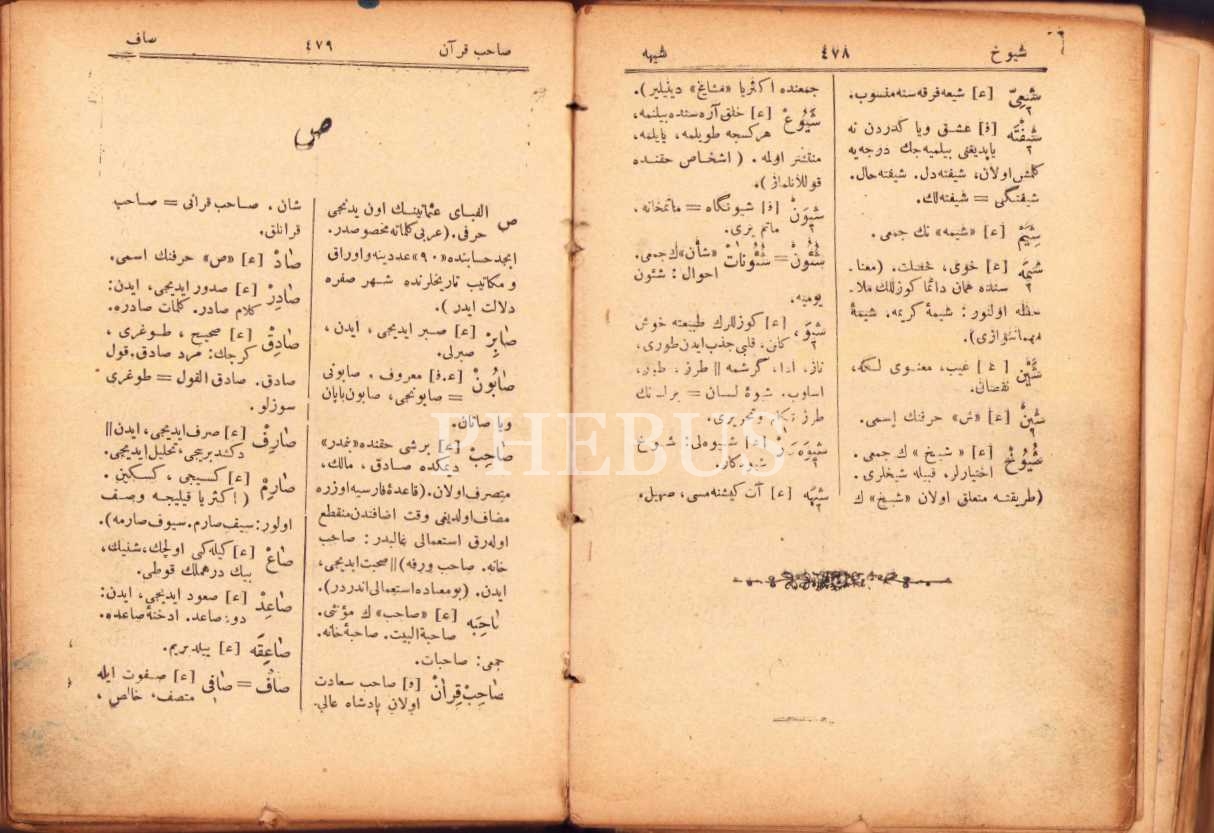 شيوخ ٤٧٨ شيهه
شيعى [ع] شيعه فرقه سنه منسوب.
شيفته [ف] عشق ويا كدردن نه
ياپديغنى بيلميه جك درجه يه
كلمش اولان، شيفته دل. شيفته حال.
شيفتگى = شيفته لك.
شيم [ع] «شيمه» نك جمعى.
شيمه [ع] خوى، خصلت. (معنا
سنده همان دائما كوزللك ملا
حظه اولنور : شيمۀ كريمه. شيمۀ
مهماننوازى).
شين [ع] عيب، معنوى لكه،
نقصان.
شين [ع] «ش» حرفنك إسمى.
شيوخ [ع] «شيخ» ك جمعى.
اختيارلر. قبيله شيخلرى.
(طريقته متعلق اولان «شيخ» ك
جمعنده اكثريا «مشايخ» دينيلير).
شيوع [ع] خلق آره سنده بيلنمه،
هركسجه طويلمه، يايلمه،
منتشر اولمه. (اشخاص حقنده
قوللانلماز).
شيون [ف] شيونگاه = ماتمخانه.
ماتم يرى.
شئون = شئونات «شأن» ك جمعى.
احوال : شئون
يوميه.
شيوه [ع] كوزللرك طبيعته خوش
كلن، قلبى جذب ايدن طورى،
ناز، ادا، گرشمه || طرز، طور،
اسلوب. شيوۀ لسان = بر لسانك
طرز تكلم وتحريرى.
[ع] شيوه لى : شوخ
شيوه كار.
شيهه [ع] آت كيشنه مسى، صهيل.
صاحب قرآن ٤٧٩ صاف
ص
ص الفباى عثمانينك اون يدنجى
حرفى. (عربى كلماته مخصوصدر.
ابجد حسابنده «٩٠» عددينه واوراق
و مكاتيب تاريخلرنده شهر صفره
دلالت ايدر).
صابر [ع] صبر ايديجى، ايدن،
صبرلى.
صابون [ع.ف] معروف. صابونى
= صابونجى، صابون ياپان
ويا صاتان.
صاحب [ع] برشى حقنده «بنمدر»
ديمكده صادق، مالك،
متصرف اولان. (قاعدۀ فارسيه اوزره
مضاف اولديغى وقت اضافتدن منقطع
اوله رق استعمالى غالبدر : صاحب
خانه. صاحب ورقه) || صحبت ايديجى،
ايدن. (بو معناده استعمالى اندردر).
صاحبه [ع] «صاحب» ك مؤنثى.
صاحبة البيت. صاحبۀ خانه.
جمعى : صاحبات.
صاحبقران [ف] صاحب سعادت
اولان پادشاه عالى
شان. صاحب قرانى = صاحب
قرانلق.
صاد [ع] «ص» حرفنك اسمى.
صادر [ع] صدور ايديجى، ايدن:
كلام صادر. كلمات صادره.
صادق [ع] صحيح، طوغرى،
كرجك: مرد صادق. قول
صادق. صادق القول = طوغرى
سوزلو.
صارف [ع] صرف ايديجى، ايدن ||
دكشديريجى، تحليل ايديجى.
صارم [ع] كسيجى، كسكين.
(اكثريا قيليجه وصف
اولور: سيف صارم. سيوف صارمه).
صاع [ع] كيله كى اولچك، شنيك،
بيك درهملك قوطى.
صاعد [ع] صعود ايديجى، ايدن:
دود صاعد. ادخنۀ صاعده.
صاعقه [ع] ييلديريم.
صاف = صافى [ع] صفوت ايله
متصف، خالص،
PHEBUS